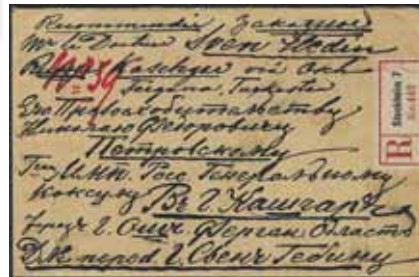 Recommandée Заказное
Mr le Docteur Sven Hedin
Kaschgar via Osch
Fergana, Turkestan
Его Превосходительству
Николаю Федоровичу
Петровскому
Ген. Имп. Росс. Генеральному
Консулу Въ Г. Кашгаръ
чрезъ Г. Ошъ, Ферган. Область
Для перед. Г. Свенъ Гедину
R
Stockholm 7